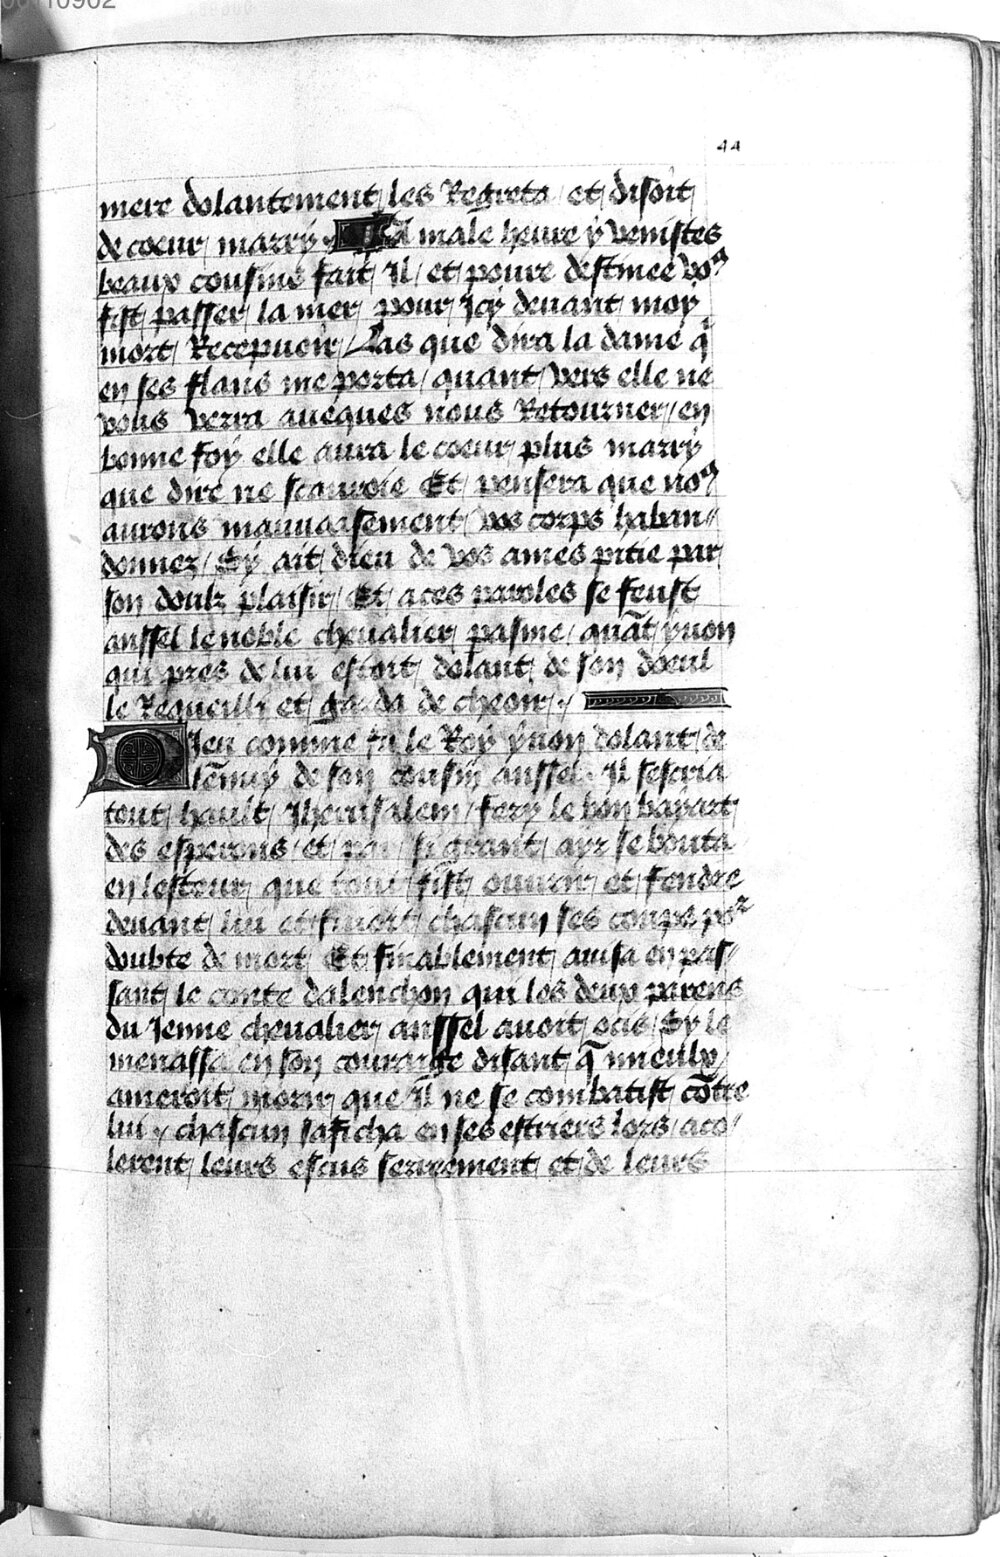 44
mere dolantement les Regreta et disoit
de coeur marry A male heure y venistes
beaux cousins fait Il et poure destinee vo9
fist passer la mer pour Icy deuant moy
mort Recepuoir Las que dira la dame q̄
en ses flans me porta quant vers elle ne
vous verra auecques nous Retourner en
bonne foy elle aura le coeur plus marry
que dire ne scauroie Et pensera que no9
aurons mauuaisement vos corps haban〃
donnez Sy ait dieu de vos ames pitie par
son doulz plaisir Et a ces paroles se feust
anssel le noble cheualier pasme quāt ynon
qui pres de lui estoit dolant de son doeul
le Requeilli et garda de cheoir
Dieu comme fu le Roy ynon dolant de
lēnuy de son cousin anssel Il sescria
tout hault Iherusalem fery le bon bayart
des esperons et par si grant ayr se bouta
en lestour que tout fist ouurir et fendre
deuant lui et fuioit chascun ses coups po2
doubte de mort Et finablement auisa en pas〃
sant le conte dalenchon qui les deux parens
du Jenne cheualier anssel auoit ocis Sy le
menassa en son couraige disant q̄ mieulx
ameroit morir que Il ne se combatist cōtre
lui chascun saficha en ses estriers lors aco/
lerent leurs escus serreement et de leurs